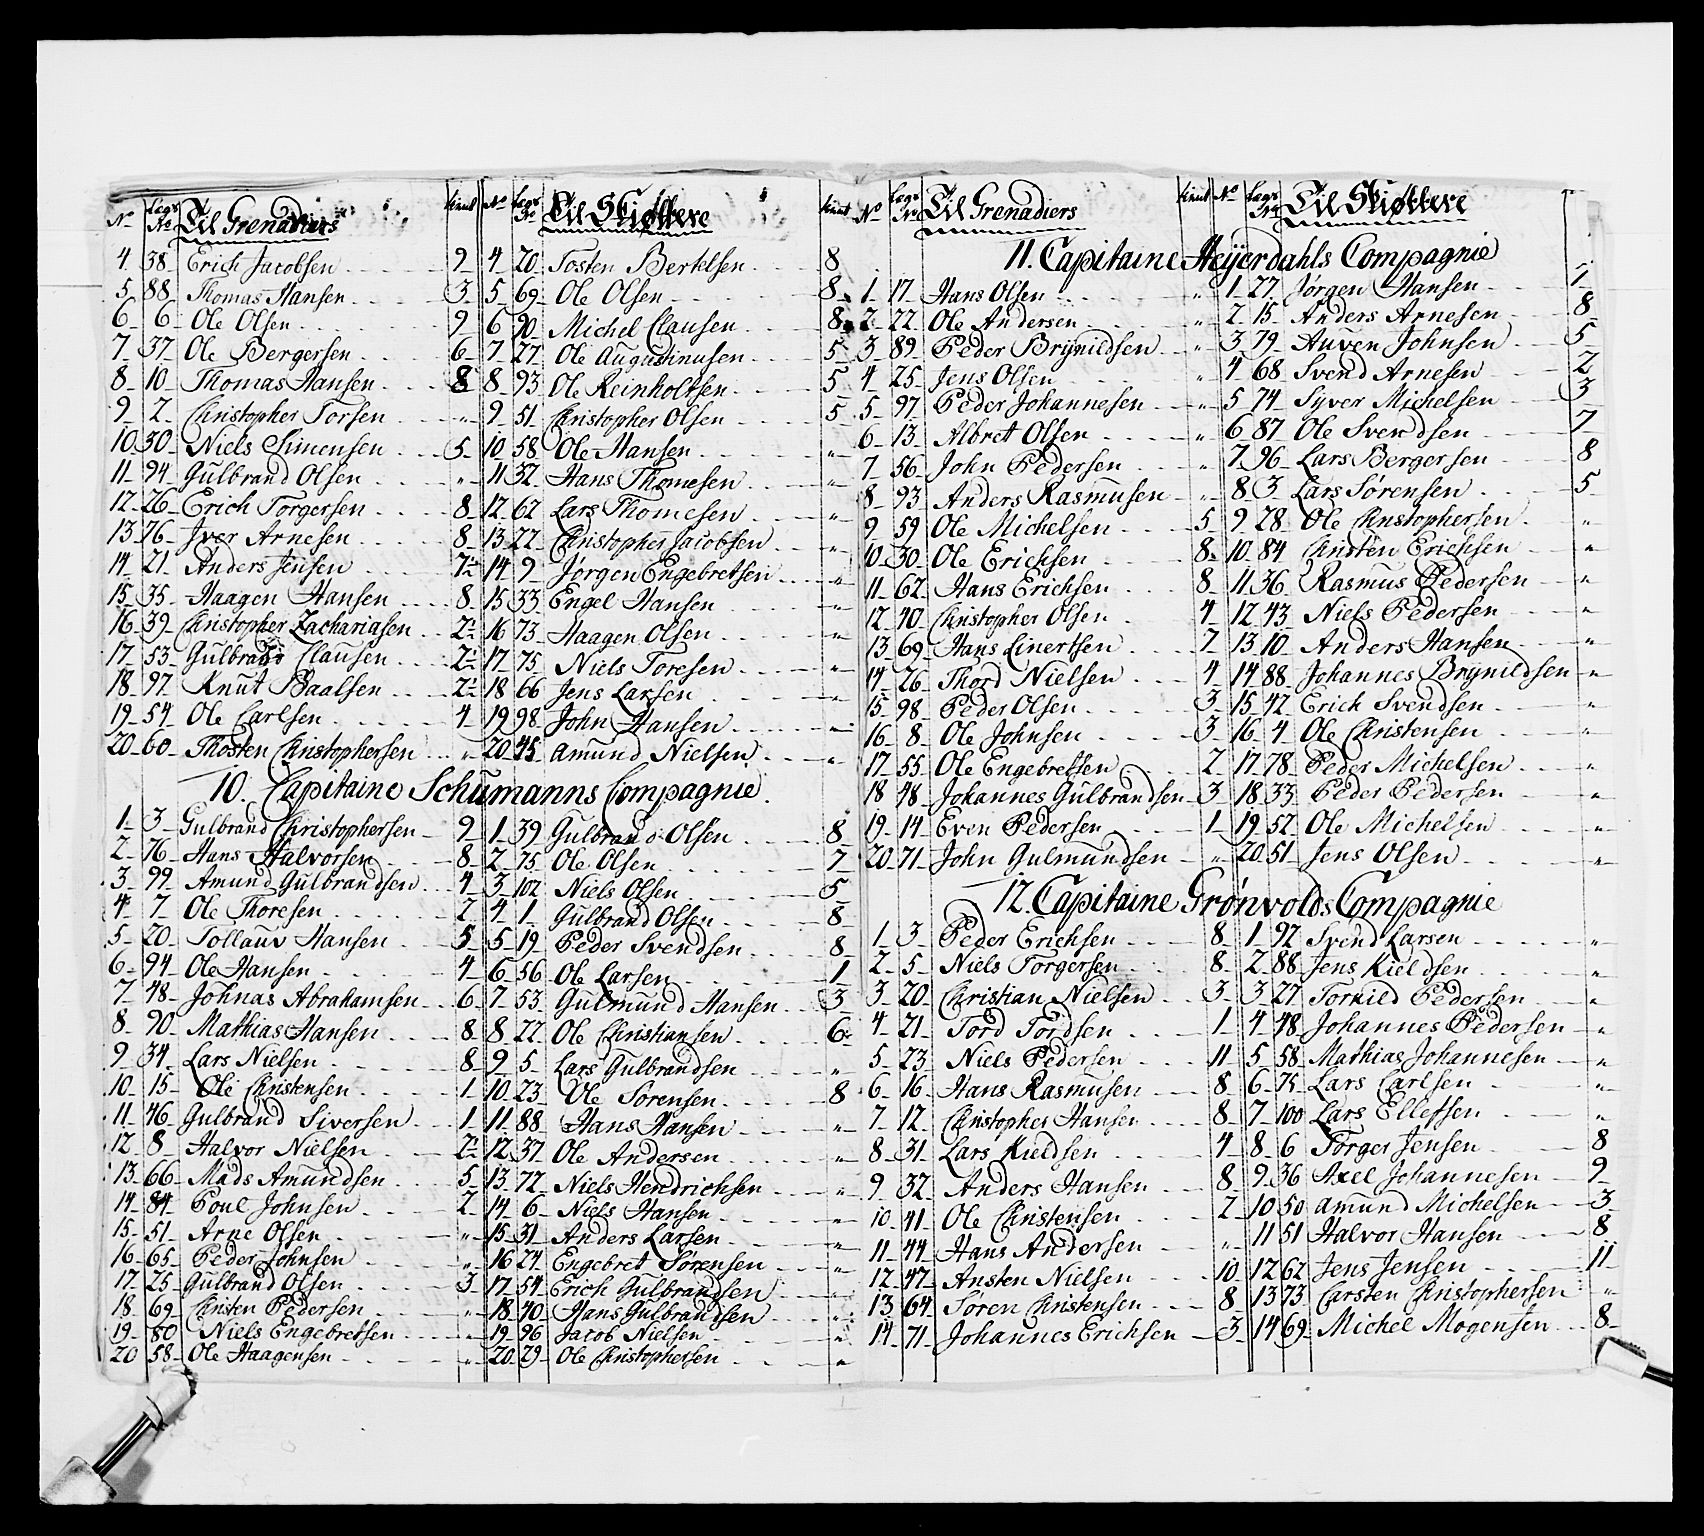 No Lægs No Til Grenadiers tient No Lægs No Til Skiøttere tient
4 38 Erich Jacobsen 9 4 20 Tosten Bertelsen 8
5 88 Thomas Hansen 3 5 69 Ole Olsen 8
6 6 Ole Olsen 9 6 90 Michel Clausen 8
7 37 Ole Bergersen 6 7 27 Ole Augustinusen 5
8 10 Thomas Hansen 8 8 93 Ole Reinholtsen 5
9 2 Christopher Torsen " 9 51 Christopher Olsen 5
10 30 Niels Simensen 5 10 58 Ole Hansen "
11 94 Gulbrand Olsen " 11 32 Hans Thomesen "
12 26 Erich Torgersen 8 12 62 Lars Thomesen "
13 76 Iver Arnesen 8 13 22 Christopher Jacobsen "
14 21 Anders Jensen 7 14 9 Jørgen Engebretsen "
15 35 Haagen Hansen 8 15 33 Engel Hansen "
16 39 Christopher Zachariasen 2 16 73 Haagen Olsen "
17 53 Gulbrand Clausen 2 17 75 Niels Toresen "
18 97 Knut Paalsen 2 18 66 Jens Larsen "
19 54 Ole Carlsen 4 19 98 John Hansen "
20 60 Thosten Christophersen " 20 45 Amund Nielsen "
10. Capitaine Schumanns Compagnie
1 3 Gulbrand Christophersen 9 1 39 Gulbrand Olsen 8
2 76 Hans Halvorsen 8 2 75 Ole Olsen 7
3 99 Amund Gulbrandsen 4 3 102 Niels Olsen 5
4 7 Ole Thoresen 2 4 1 Gulbrand Olsen 8
5 20 Tollauv Hansen 5 5 19 Peder Svendsen 8
6 94 Ole Hansen 4 6 56 Ole Larsen 1
7 48 Johnas Abrahamsen 6 7 53 Gulmund Hansen 3
8 90 Mathias Hansen 8 8 22 Ole Christiansen 6
9 34 Lars Nielsen 8 9 5 Lars Gulbrandsen "
10 15 Ole Christensen 1 10 23 Ole Sørensen 8
11 46 Gulbrand Siversen 1 11 88 Hans Hansen "
12 8 Halvor Nielsen 2 12 37 Ole Andersen "
13 66 Mads Amundsen 5 13 72 Niels Hendrichsen "
14 84 Poul Johnsen 2 14 6 Niels Hansen "
15 51 Arne Olsen " 15 31 Anders Larsen "
16 65 Peder Johnsen " 16 24 Engebret Sørensen "
17 25 Gulbrand Olsen 3 17 54 Erich Gulbrandsen "
18 69 Christen Pedersen " 18 40 Hans Gulbrandsen "
19 80 Niels Engebretsen " 19 96 Jacob Nielsen "
20 58 Ole Haagensen " 20 29 Ole Christophersen "
No Lægs No Til Grenadiers tient No Lægs No Til Skiøttere
11. Capitaine Heyerdahls Compagnie
1 17 Hans Olsen " 1 27 Jørgen Hansen 1
2 22 Ole Andersen " 2 15 Anders Arnesen 8
3 89 Peder Brynildsen " 3 79 Auven Johnsen 5
4 25 Jens Olsen " 4 68 Svend Arnesen 2
5 97 Peder Johannesen " 5 74 Syver Michelsen 3
6 13 Albret Olsen " 6 87 Ole Svendsen 7
7 56 John Pedersen " 7 96 Lars Bergersen 8
8 93 Anders Rasmusen " 8 3 Lars Sørensen 5
9 59 Ole Michelsen 5 9 28 Ole Christophersen "
10 30 Ole Erichsen 8 10 84 Christen Erichsen "
11 62 Hans Erichsen 8 11 36 Rasmus Pedersen "
12 40 Christopher Olsen 4 12 43 Niels Pedersen "
13 69 Hans Linertsen 2 13 10 Anders Hansen "
14 26 Thord Nielsen 4 14 88 Johannes Brynildsen "
15 98 Peder Olsen 3 15 42 Erich Svendsen "
16 8 Ole Johnsen 3 16 4 Ole Christensen "
17 55 Ole Engebretsen 2 17 78 Peder Michelsen "
18 48 Johannes Gulbrandsen 3 18 33 Peder Pedersen "
19 14 Even Pedersen 1 19 52 Ole Michelsen "
20 71 John Gulmundsen " 20 51 Jens Olsen "
12. Capitaine Grønvolds Compagnie
1 3 Peder Erichsen 8 1 92 Svend Larsen "
2 5 Niels Torgersen 8 2 88 Jens Kieldsen "
3 20 Christian Nielsen 3 3 27 Torkild Pedersen "
4 21 Tord Tordsen 1 4 48 Johannes Pedersen "
5 23 Niels Pedersen 11 5 58 Mathias Johannesen "
6 16 Hans Rasmusen 8 6 75 Lars Carlsen "
7 12 Christopher Hansen 8 7 100 Lars Ellefsen "
8 31 Lars Kieldsen 4 8 6 Torger Jensen 8
9 32 Anders Hansen 8 9 36 Axel Johannesen 9
10 41 Ole Christensen 2 10 50 Amund Michelsen 3
11 44 Hans Andersen " 11 51 Halvor Hansen 8
12 47 Ansten Nielsen 10 12 62 Jens Jensen 11
13 64 Søren Christensen 8 13 73 Carsten Christophersen "
14 71 Johannes Erichsen 3 14 69 Michel Mogensen 8